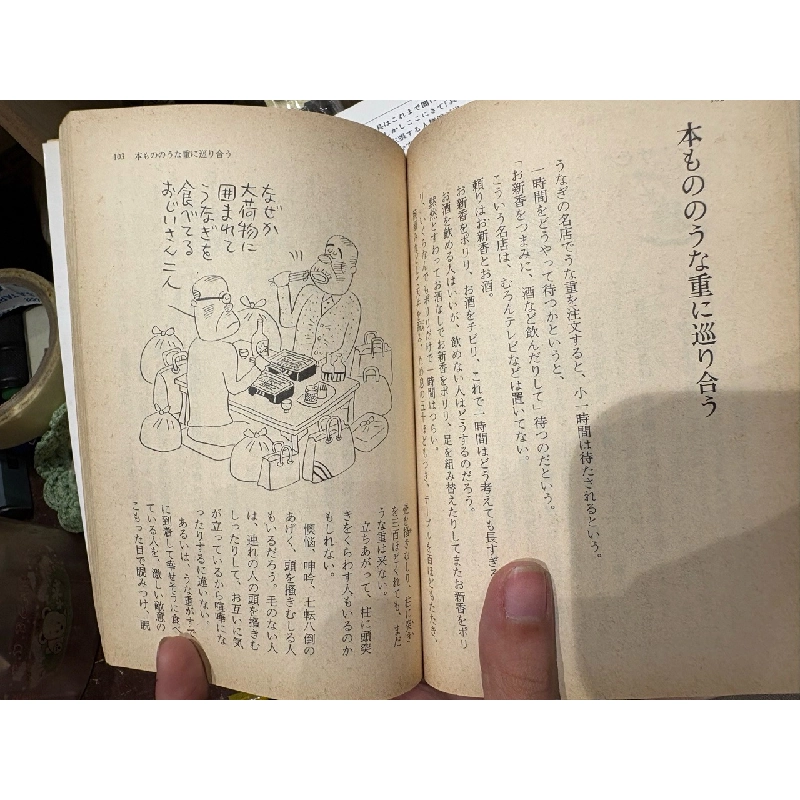 本もののうな重に巡り合う
うなぎの名店でうな重を注文すると、小一時間は待たされるという。
一時間をどうやって待つかというと、
「お新香をつまみに、酒など飲んだりして」待つのだという。
こういう名店は、むろんテレビなどは置いてない。
頼りはお新香とお酒。
お新香をポリリ、お酒をチビリ、これで一時間はどう考えても長すぎる
お酒を飲める人はいいが、飲めない人はどうするのだろう。
黙然とすわってお酒なしでお新香をポリリ、足を組み替えたりしてまたお新香をポリ
リ、いくらなんでもポリリだけで一時間はつらい。
103 本もののうな重に巡り合う
なぜか
大荷物に
囲まれて
うなぎを
食べてる
おじいさん二人
うな重は来ない。
立ちあがって、柱に頭突
きをくらわす人もいるのか
もしれない。
懊悩、呻吟、七転八倒の
あげく、頭を掻きむしる人
もいるだろう。毛のない人
は、連れの人の頭を掻きむ
しったりして、お互いに気
が立っているから喧嘩にな
ったりするに違いない。
あるいは、うな重がすで
に到着して幸せそうに食べ
ている人を、激しい敵意の
こもった目で睨みつけ、呪